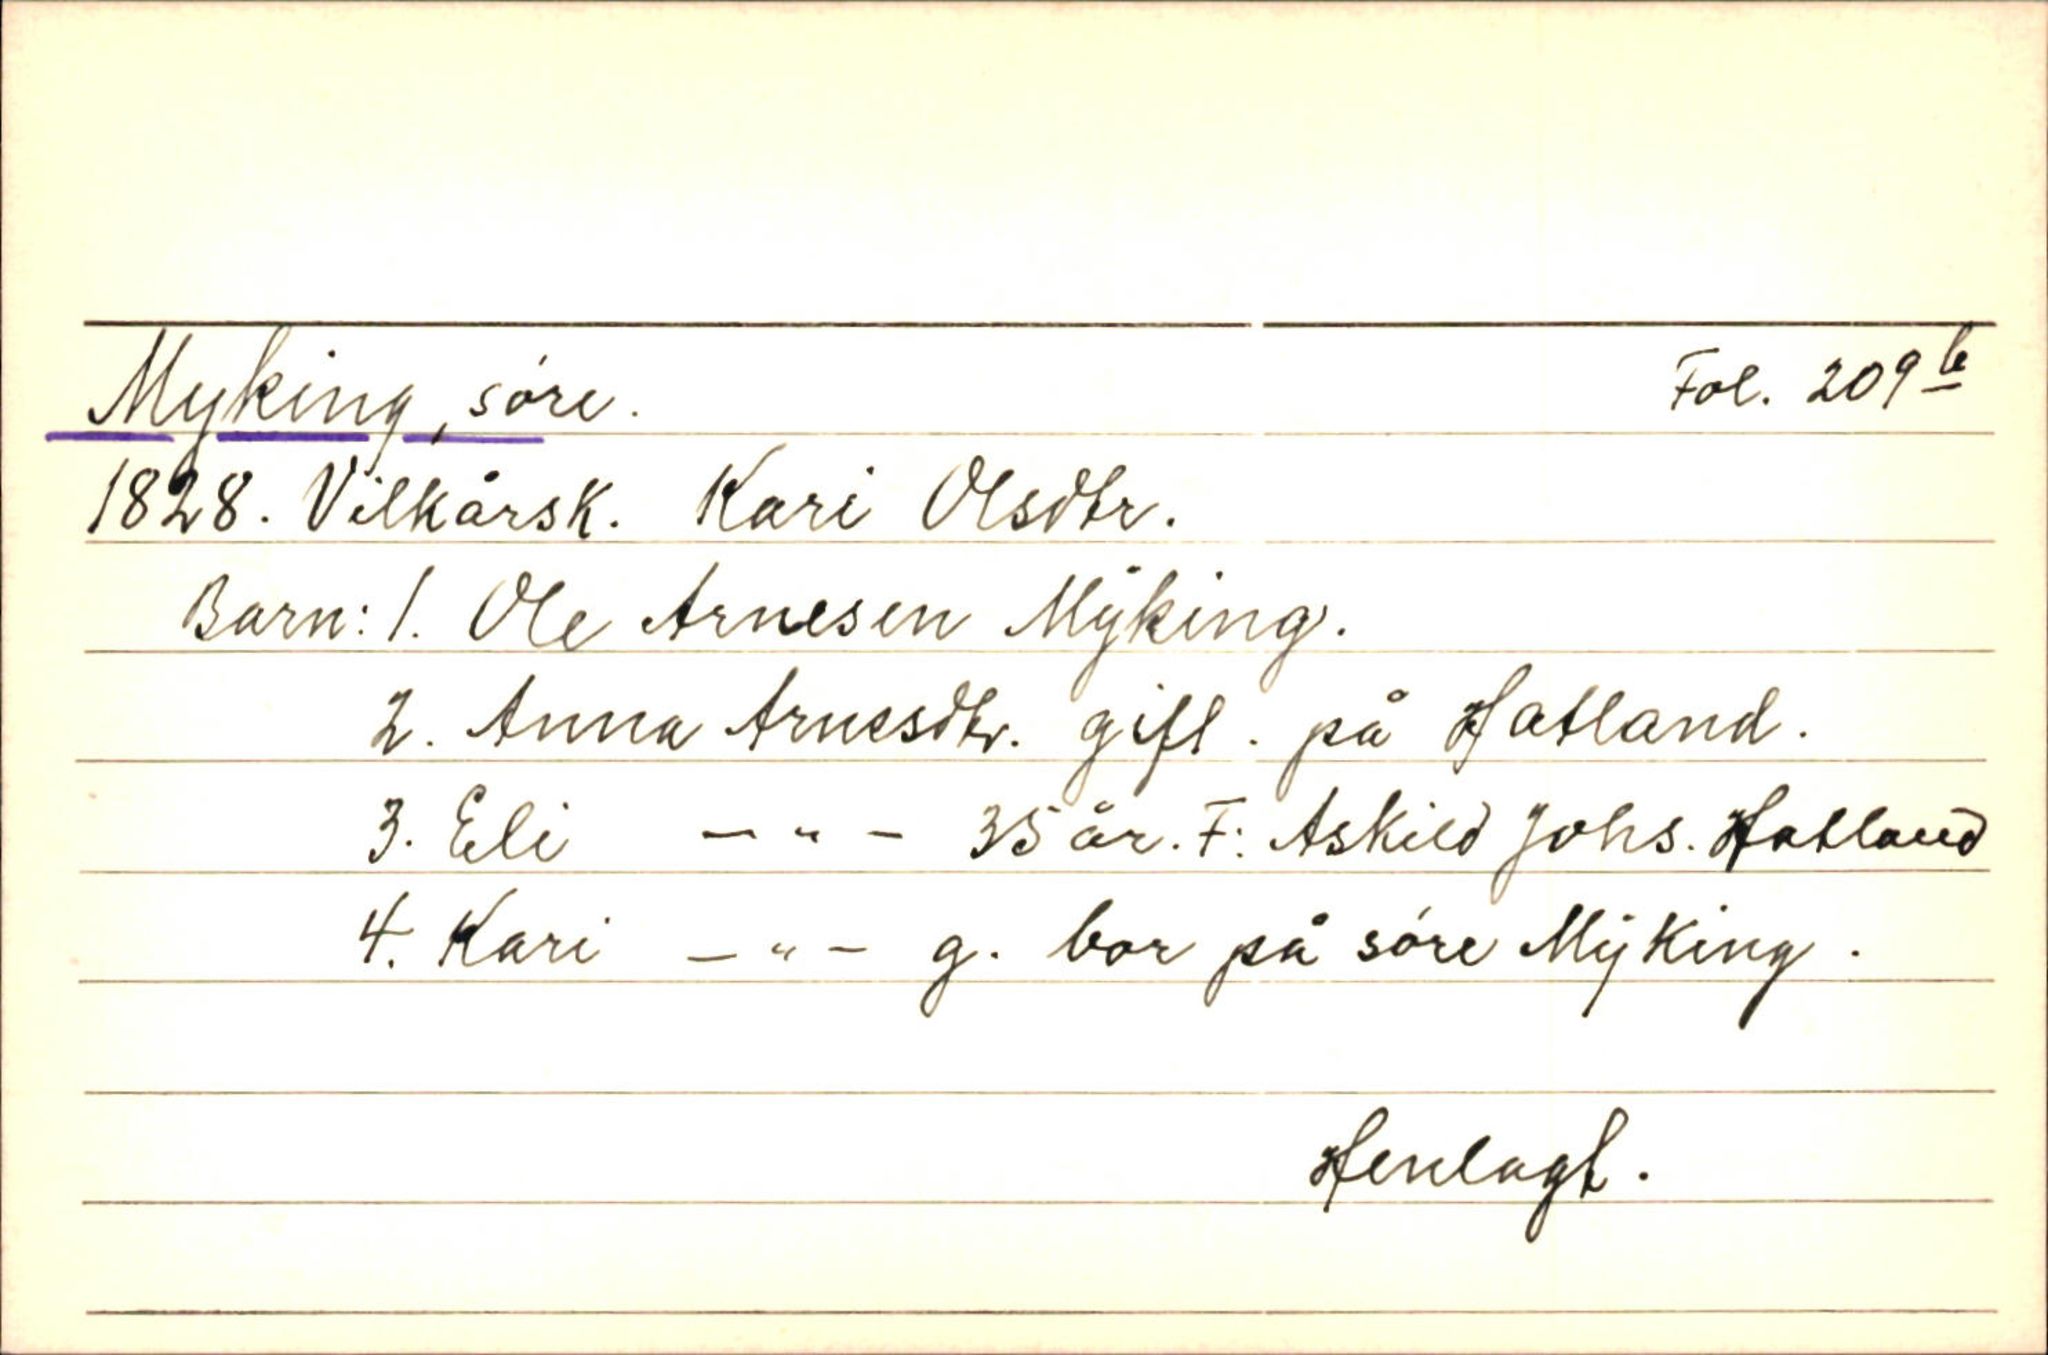 Myking, søre. Fol. 209 b
1828. Vilkårsk. Kari Olsdtr.
Barn: 1. Ole Arnesen Myking.
2. Anna Arnesdtr. gift. på Hatland.
3. Eli - " - 35 år. F: Askild Johs. Hatland
4. Kari - " - g. bor på søre Myking.
Henlagt.